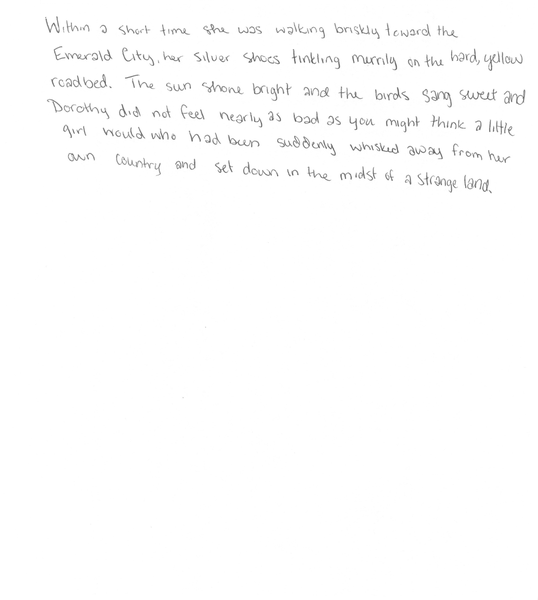 Within a short time she was walking briskly toward the
Emerald City, her silver shoes tinkling merrily on the hard, yellow
roadbed. The sun shone bright and the birds sang sweet and
Dorothy did not feel nearly as bad as you might think a little
girl would who had been suddenly whisked away from her
own country and set down in the midst of a strange land.